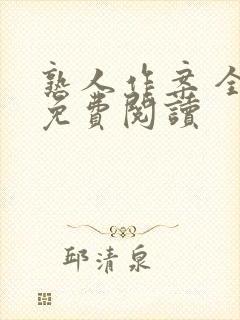 熟人作案全
免費閱讀
邱清泉